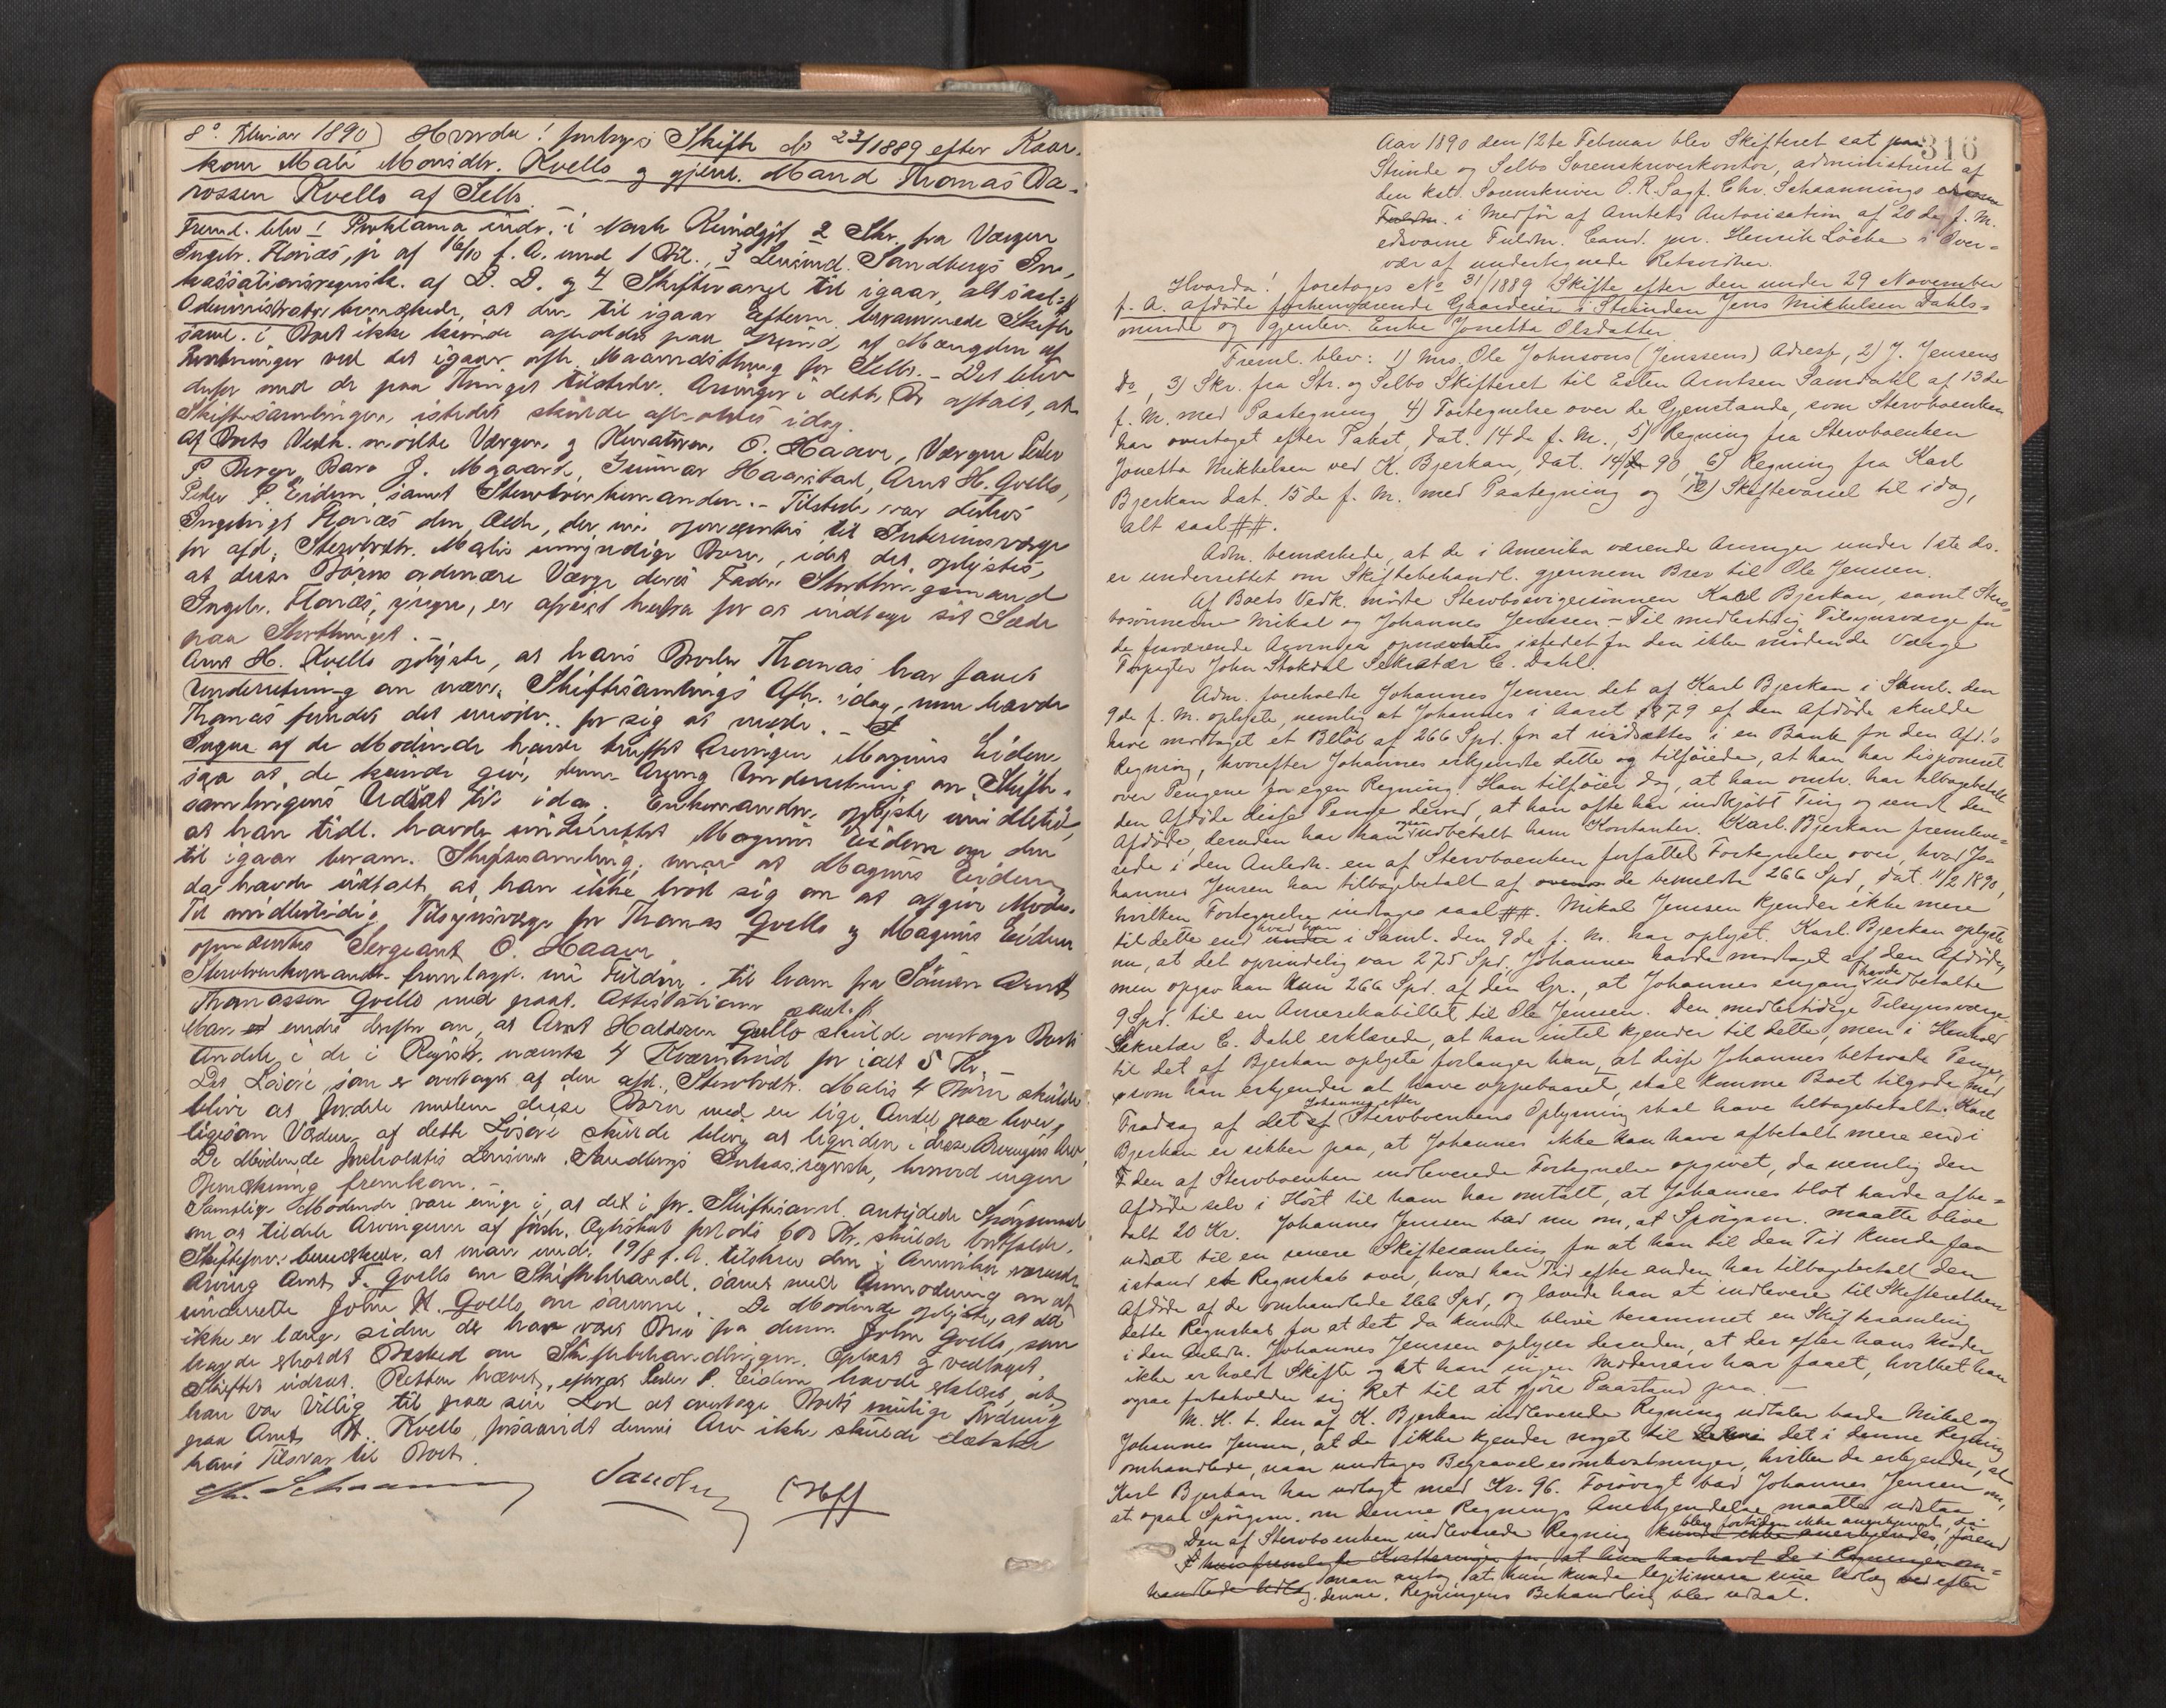 8de Februar 1890) Hvorda! foretoges Skifte No 23/1889 efter Kaar-
kone Mali Monsdtr. Kvello og gjenl. Mand Thomas Da-
rossen Kvello af Selb.
Freml. blev 1 Proklama indr. i Norsk Kundgj. 2 Skr. fra Værgen
Ingebr. Flønæs, jr af 16/10 f. A. med 1 Bil., 3 Lensmd. Sandbergs In-
kassationsregnsk. af D. D. og 4 Skiftevarsel til igaar, alt saal. #
Administrator bemærkede, at den til igaar Efterm. berammede Skifte
saml. i Boet ikke kunde afholdes paa Grund af Mængden af
Forretninger ved det igaar afh. Maanedsthing for Selb. - Det blev
derfor med de paa Thinget tilstedev. Arvinger i dette Bo aftalt, at
Skiftesamlingen istedet skulde afholdes idag.
Af Boets Vedk. mødte Værgen og Kuratoren O. Haave, Værgen Peder
P. Berge, Baro J. Mogaard, Gunnar Haarstad, Arnt H. Qvello,
Peder P. Eidem samt Stervboenkemanden. - Tilstede var derhos
Ingebrigt Flønæs den Ældr., der nu opnævntes til Interimsværge
for afd. Stervbodtr. Malis umyndige Børn, idet det oplystes,
at disse Børns ordinære Værge deres Fader Storthingsmand
Ingebr. Flønæs, yngre, er afreist herfra for at indtage sit Sæde
paa Storthinget. -
Arnt H. Kvello oplyste, at hans Broder Thomas har faaet
Underretning om nærv. Skiftesamlings Afh. idag, men havde
Thomas fundet det unødv. for sig at møde. -
Ingen af de Mødende havde truffet Arvingen Magnus Eidem
saa at de kunde give denne Arving Underretning om Skifte-
samlingens Udsæt til idag. Enkemanden oplyste imidlertid,
at han tidl. havde underrettet Magnus Eidem om den
til igaar beram. Skiftesamling, men at Magnus Eidem
da havde udtalt, at han ikke brød sig om at afgive Møde.
Til midlertidig Tilsynsværge for Thomas Qvello og Magnus Eidem
opnævntes Sergeant O. Haave
Stervboenkemanden fremlagde en Fuldm. til ham fra Sønnen Arnt
Thomassen Qvello med paat. Attestationer saal. #
Man er endvidere om, at Arnt Haldosen Qvello skulde overtage Boets
Andele i de i Registr. nævnte 4 Kværnhus for ialt 5 Kr. -
Det Løsøre, som er overtaget af den afd. Stervbodtr. Malis 4 Børn skulde
blive at fordele mellem disse Børn med en lige Andel paa hver,
ligesom Værdien af dette Løsøre skulde blive at liquidere i disse Arvingers Arv.
De Mødende foreholdtes Lensmd. Sandbergs Inkas.regnsk., hvorved ingen
Bemærkning fremkom. -
Samtlige Mødende vare enige i, at det i fr. Skiftesaml. antydede Spørgsmaal
om at tildele Arvingerne af første Ægteskab forlods 600 Kr. skulde bortfalde.
Skifteforv. bemærkede, at man und. 19/8 f. A. tilskrev den i Amerika værende
Arving Arnt T. Qvello om Skiftebehandl. samt med Anmodning om at
underrette John H. Qvello om samme. De Mødende oplyste, at det
ikke er længe siden der har været Brev fra denne John Qvello, som
havde erholdt Besked om Skiftebehandlingen. Oplæst og vedtaget.
Skiftet udsat. Retten hævet, efterat Peder P. Eidem havde erklæret, at
han var villig til paa sin Lod at overtage Boets mulige Fordring
paa Arnt H. Kvello, forsaavidt dennes Arv ikke skulde dække
hans Tilsvar til Boet.
Chr. Schaanning Sandberg

316
Aar 1890 den 12te Februar blev Skifteret sat paa
Strinde og Selbo Sorenskriverkontor, administreret af
den kst. Sorenskriver O.R.Sagf. Chr. Schaannings
Fuldm. i Medfør af Amtets Autorisation af 20de f. M.
edsvorne Fuldm. Cand. jur. Henrik Löcke i Over-
vær af undertegnede Retsvidner.
Hvorda! foretoges No 31/1889 Skifte efter den under 29 November
f. A. afdøde forhenværende Gaardeier i Strinden Jens Mikkelsen Dahls-
minde og gjenlev. Enke Jonetta Olsdatter
Freml. blev: 1) Mrs. Ole Johnsons (Jenssens) Adresse, 2) J. Jensens
Do, 3) Skr. fra Str. og Selbo Skifteret til Esten Arntsen Samdahl af 13de
f. M. med Paategning 4) Fortegnelse over de Gjenstande, som Stervboenken
har overtaget efter Takst, dat. 14de f. M., 5) Regning fra Stervboenken
Jonetta Mikkelsen ved K. Bjerkan, dat. 14/1 90, 6) Regning fra Karl
Bjerkan dat. 15de f. M. med Paategning og 7) Skiftevarsel til idag,
alt saal ##.
Adm. bemærkede, at de i Amerika værende Arvinger under 1ste ds.
er underrettet om Skiftebehandl. gjennem Brev til Ole Jenssen.
Af Boets Vedk. mødte Stervbosvigersønnen Karl Bjerkan, samt Sterv-
bosønnerne Mikal og Johannes Jenssen - Til midlertidig Tilsynsværge for
de fraværende Arvinger opnævntes istedet for den ikke mødende Værge
Forpagter John Stokdal Sekretær C. Dahl.
Adm. foreholdte Johannes Jensen det af Karl Bjerkan i Saml. den
9de f. M. oplyste, nemlig at Johannes i Aaret 1879 af den Afdøde skulde
have modtaget et Beløb af 266 Spd. for at indsættes i en Bank for den Afd.'s
Regning, hvorefter Johannes erkjendte dette og tilføiede, at han har disponeret
over Pengene for egen Regning. Han tilføier i dag, at han omtr. har tilbagebetalt
den Afdøde disse Penge derved, at han ofte har indkjøbt Ting og sendt den
Afdøde, desuden har han ogsaa udbetalt ham Kontanter. Karl Bjerkan fremleve-
rede i den Anledn. en af Stervboenken forfattet Fortegnelse over, hvad Jo-
hannes Jensen har tilbagebetalt af de bemeldte 266 Spd, dat. 11/2 1890,
hvilken Fortegnelse indtages saal ##. Mikal Jenssen kjender ikke mere
til dette end hvad han i Saml. den 9de f. M. har oplyst. Karl Bjerkan oplyste
nu, at det oprindelig var 275 Spd, Johannes havde modtaget af den Afdøde,
men opgav han kun 266 Spd. af den Gr., at Johannes engang havde udbetalte
9 Spd. til en Amerikabillet til Ole Jenssen. Den midlertidige Tilsynsværge
Sekretær C. Dahl erklærede, at han intet kjender til dette, men i Henhold
til det af Bjerkan oplyste forlanger han, at disse Johannes betroede Penge,
som han erkjender at have oppebaaret, skal komme Boet tilgode med
Fradrag af det Johannes efter Stervboenkens Oplysning skal have tilbagebetalt. Karl
Bjerkan er sikker paa, at Johannes ikke kan have afbetalt mere end i
den af Stervboenken indleverede Fortegnelse opgivet, da nemlig den
Afdøde selv i Høst til ham har omtalt, at Johannes blot havde afbe-
talt 20 Kr. Johannes Jenssen bad nu om, at Spørgsm. maatte blive
udsat til en senere Skiftesamling for at han til den Tid kunde faa
istand et Regnskab over, hvad han Tid efter anden har tilbagebetalt den
Afdøde af de omhandlede 266 Spd, og lovede han at indlevere til Skifteretten
dette Regnskab for at det da kunde blive berammet en Skiftesamling
i den Anledn. Johannes Jenssen oplyser desuden, at der efter hans Moder
ikke er holdt Skifte og at han ingen Mødrenarv har faaet, hvilket han
ogsaa forbeholder sig Ret til at gjöre Paastand paa. -
M. H. t. den af K. Bjerkan indleverede Regning udtaler baade Mikal og
Johannes Jenssen, at de ikke kjender noget til det i denne Regning
omhandlede, naar undtages Begravelsesomkostninger, hvilke de erkjender, at
Karl Bjerkan har udlagt med Kr. 96. Forøvrigt bad Johannes Jensen om,
at ogsaa Spörgsm. om denne Regnings Anerkjendelse maatte udstaa
Den af Stervboenken indleverede Regning blev fortiden ikke anerkjendt, da kunde ikke anerkjendes, förend
hun fremlagde Kvitteringer for, at hun har havt de i Regningen om-
handlede Udlæg. man antog at hun kunde legitimere sine Udlæg efter
denne. Regningens Behandling blev udsat.